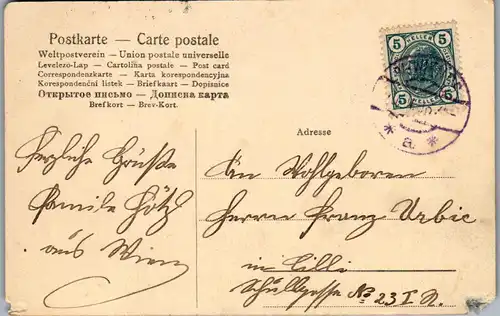 Postkarte — Carte postale
Weltpostverein – Union postale universelle
Levelezo-Lap – Cartolina postale – Post card
Correspondenzkarte – Karta korespondencyjna
Korespondenční listek – Briefkaart – Dopisnice
Открытое письмо – Дописна карта
Brefkort – Brev-Kort.
Adresse
5 HELLER 5
5 5
* a *
Herzliche Grüße
Familie Götz
aus Wien
An Wohlgeboren
Herrn Franz Urbic
in Cilli
Schulgasse No 23 I.